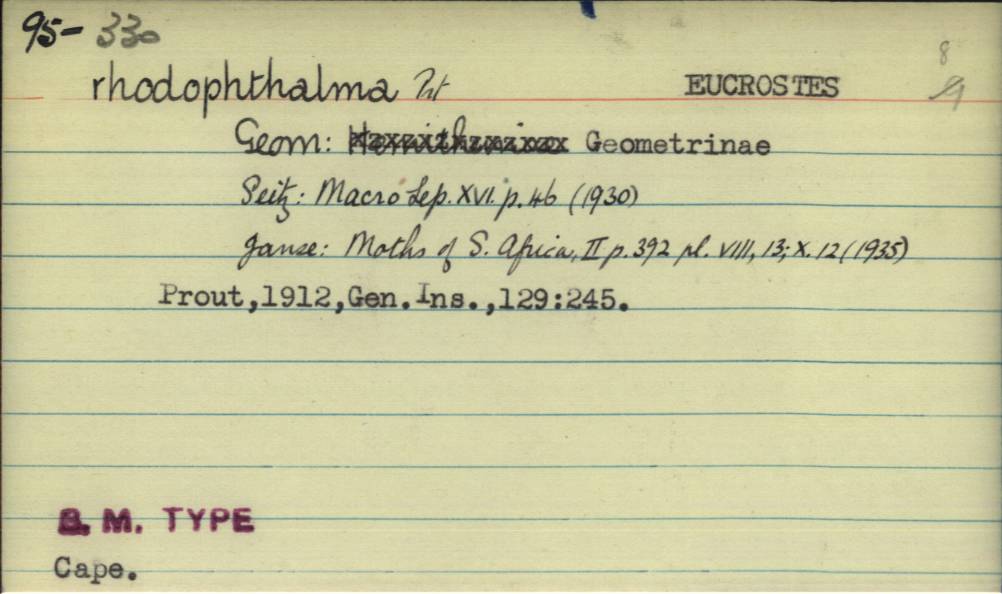 95-330
8
rhodophthalma Prt EUCROSTES
Geom: Hemitheinae Geometrinae
Seitz: Macro Lep. XVI. p. 46 (1930)
Janse: Moths of S. Africa, II p. 392 pl. VIII, 13; X. 12 (1935)
Prout,1912,Gen.Ins.,129:245.
B. M. TYPE
Cape.